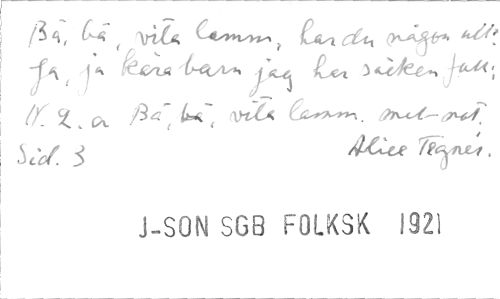 Bä, bä, vita lamm, har du någon ull?
Ja, ja kära barn jag har säcken full;
N. 2. a Bä, bä, vita lamm. met not.
Sid. 3 Alice Tegnér.
J-SON SGB FOLKSK 1921